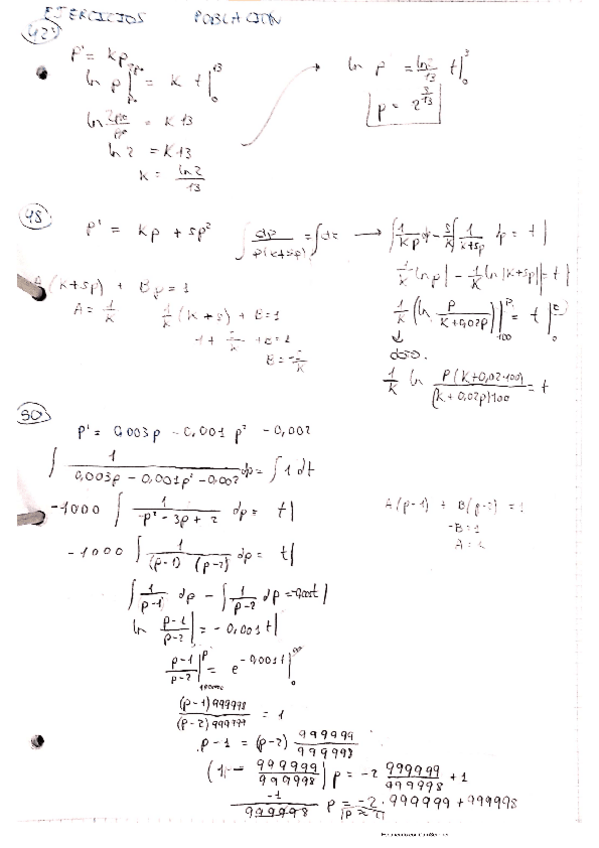 EJERCICIOS POBLACIÓN
42)
P' = Kp
ln p | = K t |₀¹³
ln 2p₀/p₀ = K 13
ln 2 = K 13
K = ln2/13
ln p = ln2/13 t |₀³
p = 2^(3/13)
48
P' = Kp + sp²
∫ dp/p(K+sp) = ∫dt → ∫ 1/Kp dp - s/K ∫ 1/K+sp dp = t |
A(K+sp) + Bp = 1
A = 1/K
1/K (K+s) + B = 1
B = -s/K
1/K ln p | - 1/K ln |K+sp| = t |
1/K (ln P/K+0,02p) |₁₀₀ᴾ = t |₀ᵗ
1/K ln P(K+0,02·100)/(K+0,02p)100 = t
50
P' = 0.003p - 0.001 p² - 0,002
∫ 1/0,003p - 0,001p² - 0,002 dp = ∫ 1 dt
-1000 ∫ 1/p² - 3p + 2 dp = t |
-1000 ∫ 1/(p-1) (p-2) dp = t |
A(p-1) + B(p-2) = 1
-B = 1
∫ 1/p-1 dp - ∫ 1/p-2 dp = -0,001t |
ln p-1/p-2 | = -0,001 t |
p-1/p-2 |ᴾ = e^(-0,001t) |₀^∞
(p-1) 999998/(p-2) 999999 = 1
p-1 = (p-2) 999999/999998
(1 - 999999/999998) p = -2 999999/999998 + 1
-1/999998 p = -2 · 999999 + 999998